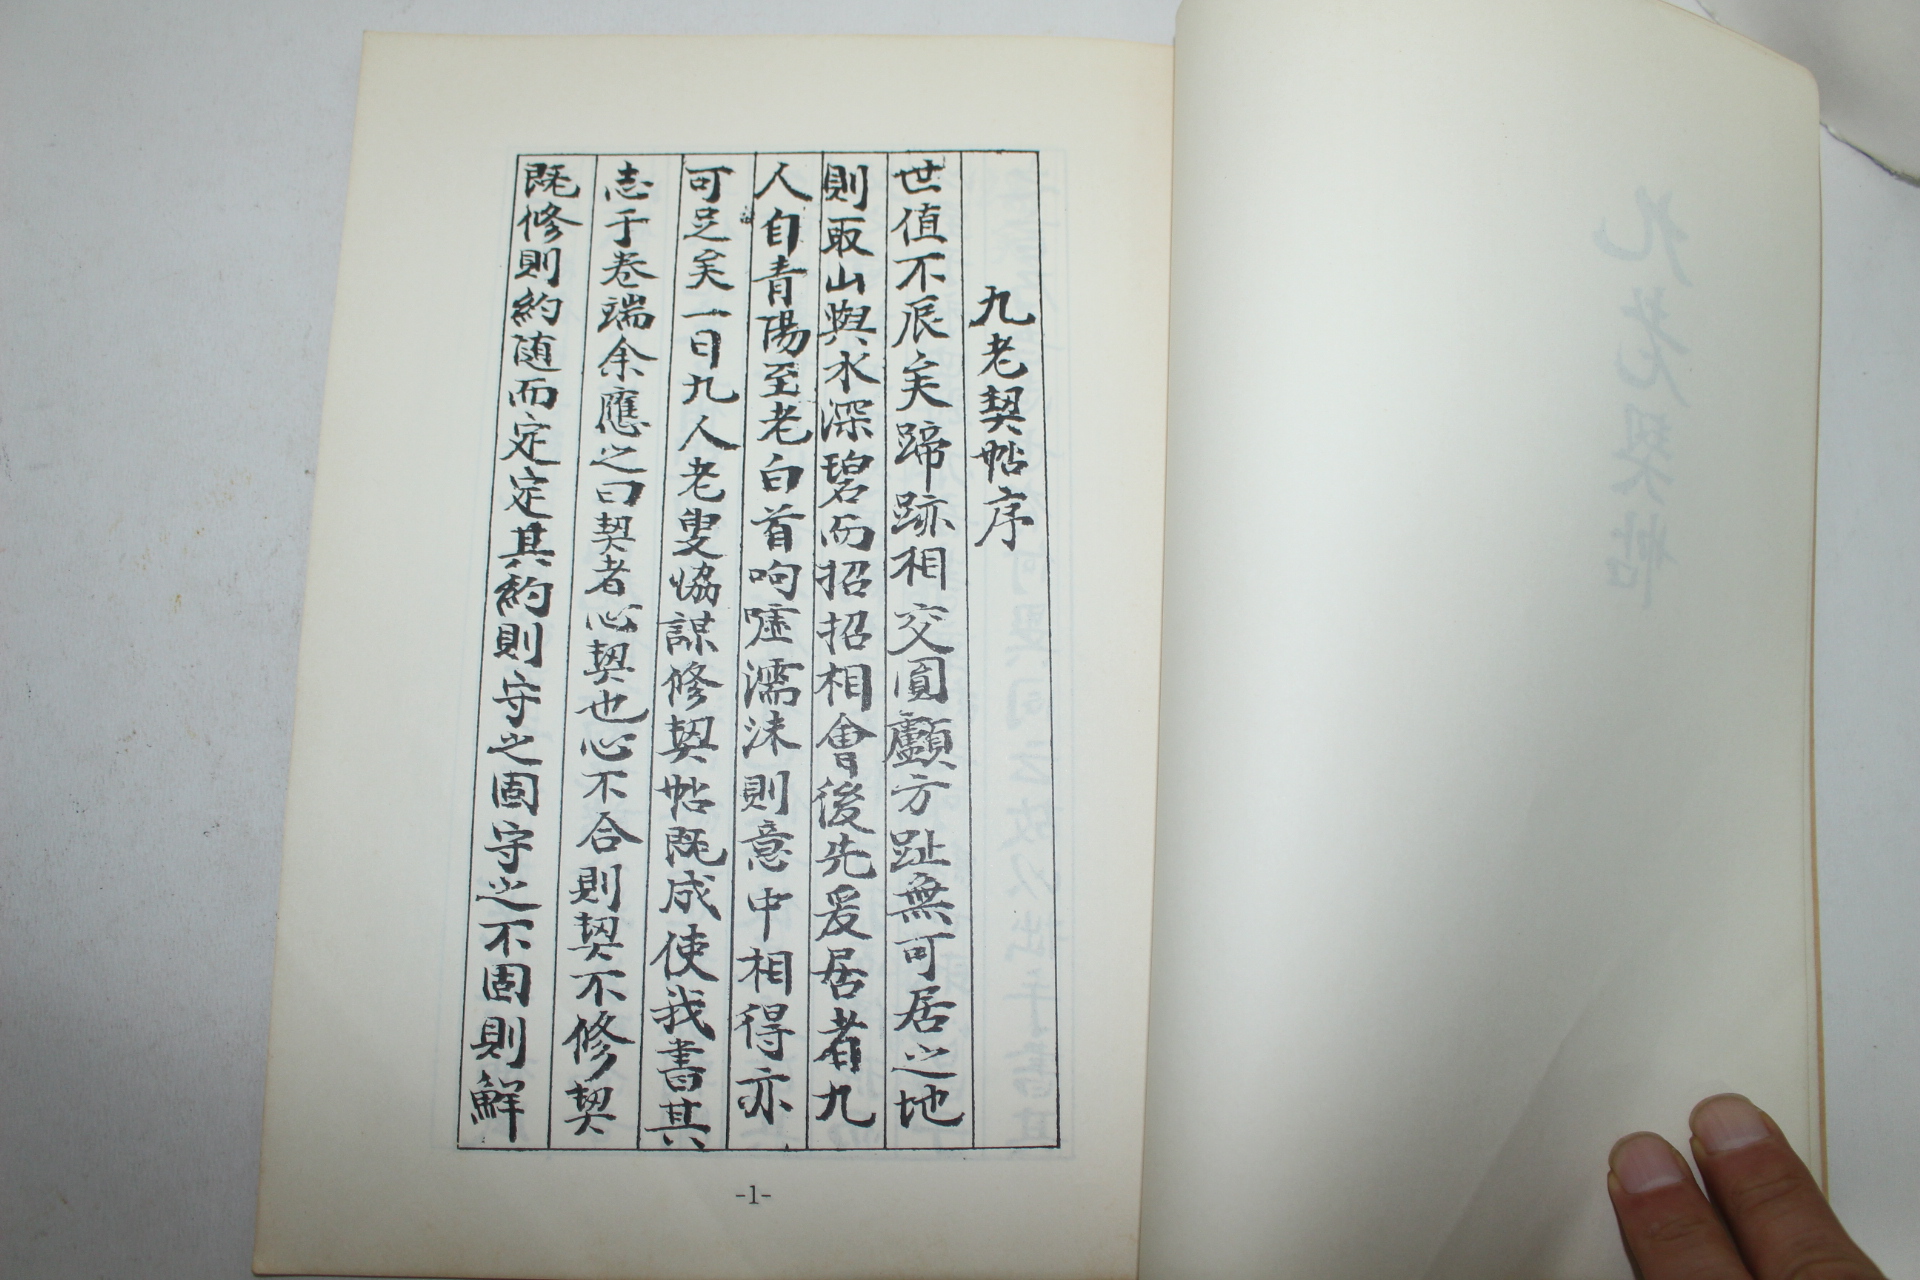 九老契帖序
世値不辰矣蹄跡相交圓顱方趾無可居之地
則取山與水深碧而招招相會後先爰居者九
人自靑陽至老白首呴噓濡沫則意中相得亦
可足矣一日九人老叟恊謀修契帖旣成使我書其
志于卷端余應之曰契者心契也心不合則契不修契
旣修則約随而定定其約則守之固守之不固則鮮
-1-
九老契帖